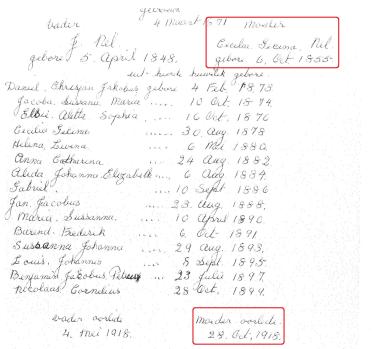 getrouwd
vader 4 Maart 1871 Moeder
J. Nel. Cecilia Gesina. Nel.
gebore 5 April 1848. gebore 6 Oct 1855.
uit hierdie huwelik gebore.
Daniel, Chrisjan Jakobus gebore 4 Feb 1873
Jacoba, Susana Maria ..... 10 Oct 1874
Elsie, Aletta Sophia .... 16 Oct 1876
Cecilia Gesina ...... 30 Aug 1878
Helena, Levina ...... 6 Mei 1880
Anna Catherina ..... 24 Aug 1882
Aluta Johanna Elizabeth .... 6 Aug 1884
Gabriel. .... 10 Sept 1886
Jan, Jacobus ..... 23. Aug 1888.
Maria. Sussanna. .... 10 April 1890
Barend. Frederik .... 6 Oct 1891
Sussanna Johanna .... 29 Aug 1893.
Louis, Johannis .... 8 Sept. 1895
Benjamin Jacobus Petrus .... 23 Julie 1897.
Nicolaas Cornelius 28 Oct. 1899.
vader oorlede Moeder oorlede.
4. Mei 1918. 28. Oct, 1918.